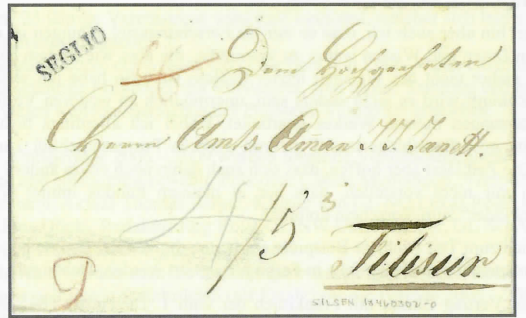 SEGLIO
Dem Hochgeehrten
Herrn Amts-Aman J. J. Janett.
5 3
Filisur.
SILSEN 18460302-0